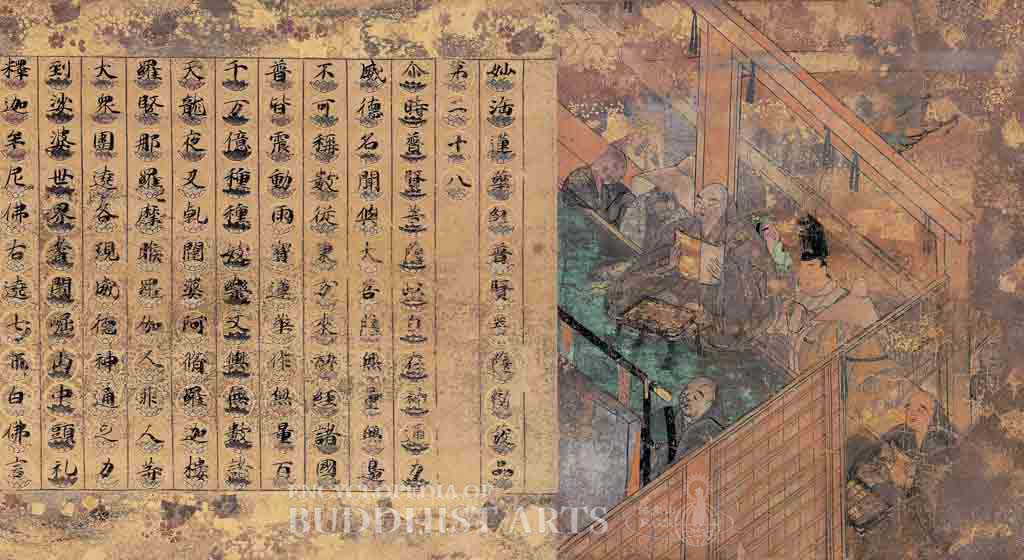 妙法蓮華經普賢菩薩勸發品
第二十八
尒時普賢菩薩以自在神通力
威德名聞與大菩薩無量無邊
不可稱數從東方來所經諸國
普皆震動雨寶蓮華作無量百
千万億種種妓樂又與無數諸
天龍夜叉乹闥婆阿脩羅迦樓
羅緊那羅摩睺羅伽人非人等
大衆圍遶各現威德神通之力
到娑婆世界耆闍崛山中頭礼
釋迦牟尼佛右遶七帀白佛言
ENCYCLOPEDIA OF
BUDDHIST ARTS